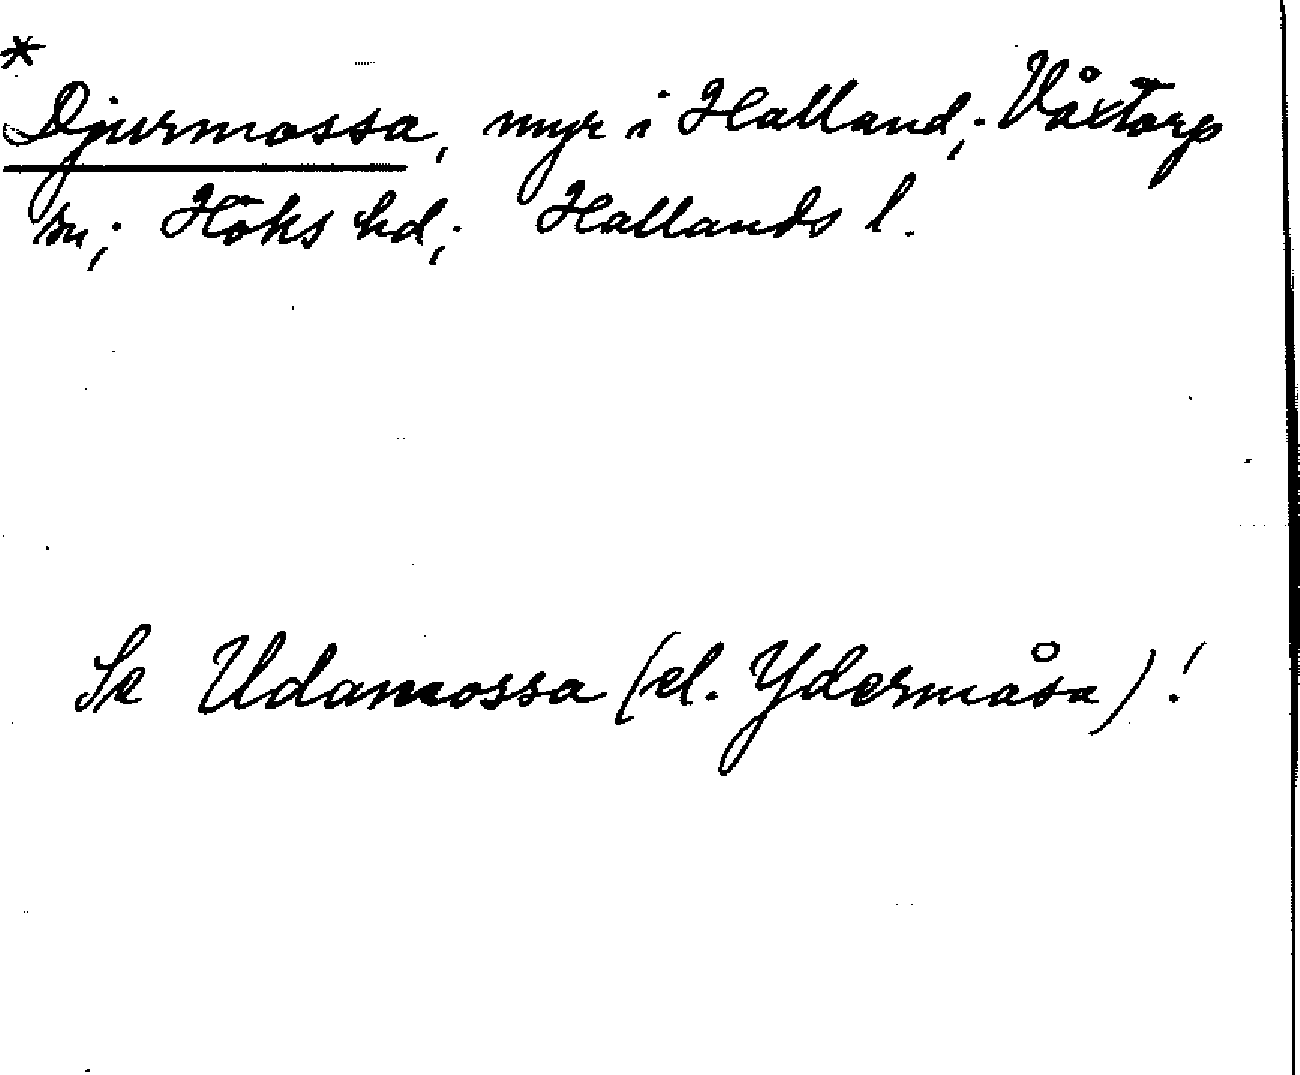 *
Djurmossa, myr i Halland; Våxtorp
sn; Höks hd; Hallands l.
Se Udamossa (el. Ydermåsa)!